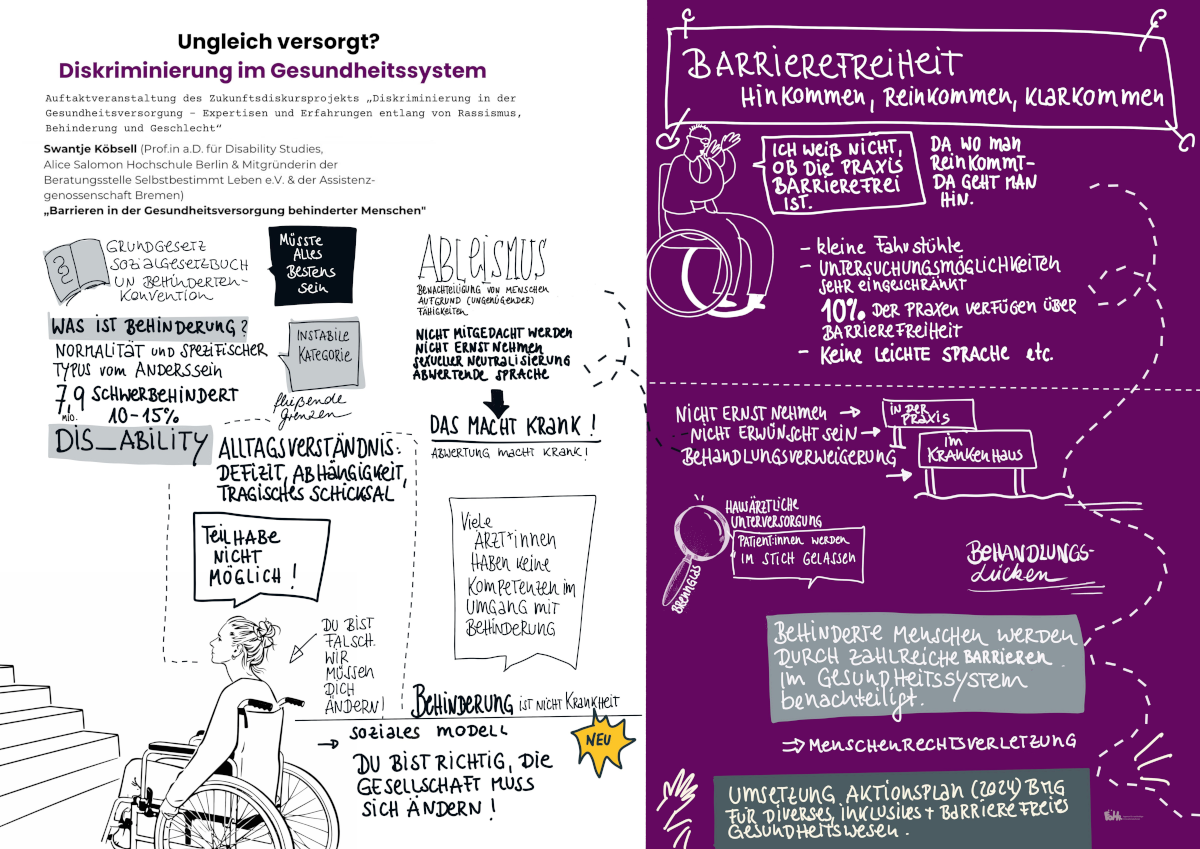 Ungleich versorgt?
Diskriminierung im Gesundheitssystem
Auftaktveranstaltung des Zukunftsdiskursprojekts „Diskriminierung in der
Gesundheitsversorgung – Expertisen und Erfahrungen entlang von Rassismus,
Behinderung und Geschlecht“
Swantje Köbsell (Prof.in a.D. für Disability Studies,
Alice Salomon Hochschule Berlin & Mitgründerin der
Beratungsstelle Selbstbestimmt Leben e.V. & der Assistenz-
genossenschaft Bremen)
„Barrieren in der Gesundheitsversorgung behinderter Menschen"
§
GRUNDGESETZ
SOZIALGESETZBUCH
UN BEHINDERTEN-
KONVENTION
MÜSSTE
ALLES
BESTENS
SEIN
WAS IST BEHINDERUNG?
NORMALITÄT UND SPEZIFISCHER
TYPUS VOM ANDERSSEIN
7,9 SCHWERBEHINDERT
MIO. 10-15%
INSTABILE
KATEGORIE
fließende
Grenzen
DIS_ABILITY
ALLTAGSVERSTÄNDNIS:
DEFIZIT, ABHÄNGIGKEIT,
TRAGISCHES SCHICKSAL
TEILHABE
NICHT
MÖGLICH!
DU BIST
FALSCH.
WIR
MÜSSEN
DICH
ÄNDERN!
ABLEISMUS
BENACHTEILIGUNG VON MENSCHEN
AUFGRUND (UNGENÜGENDER)
FÄHIGKEITEN
NICHT MITGEDACHT WERDEN
NICHT ERNST NEHMEN
SEXUELLER NEUTRALISIERUNG
ABWERTENDE SPRACHE
DAS MACHT KRANK!
ABWERTUNG MACHT KRANK!
Viele
ÄRZT*INNEN
HABEN KEINE
KOMPETENZEN IM
UMGANG MIT
BEHINDERUNG
BEHINDERUNG IST NICHT KRANKHEIT
→ SOZIALES MODELL
NEU
DU BIST RICHTIG, DIE
GESELLSCHAFT MUSS
SICH ÄNDERN!
BARRIEREFREIHEIT
HINKOMMEN, REINKOMMEN, KLARKOMMEN
ICH WEIß NICHT,
OB DIE PRAXIS
BARRIEREFREI
IST.
DA WO MAN
REINKOMMT-
DA GEHT MAN
HIN.
– kleine Fahrstühle
– UNTERSUCHUNGSMÖGLICHKEITEN
SEHR EINGESCHRÄNKT
10% DER PRAXEN VERFÜGEN ÜBER
BARRIEREFREIHEIT
– KEINE LEICHTE SPRACHE etc.
NICHT ERNST NEHMEN →
NICHT ERWÜNSCHT SEIN →
BEHANDLUNGSVERWEIGERUNG →
IN DER
PRAXIS
IM
KRANKENHAUS
BRENNGLAS
HAUSÄRZTLICHE
UNTERVERSORGUNG
PATIENT:INNEN WERDEN
IM STICH GELASSEN
BEHANDLUNGS-
Lücken
BEHINDERTE MENSCHEN WERDEN
DURCH ZAHLREICHE BARRIEREN
IM GESUNDHEITSSYSTEM
benachteiligt.
⇒ MENSCHENRECHTSVERLETZUNG
UMSETZUNG AKTIONSPLAN (2024) BMG
FÜR DIVERSES, INKLUSIVES + BARRIEREFREIES
GESUNDHEITSWESEN.